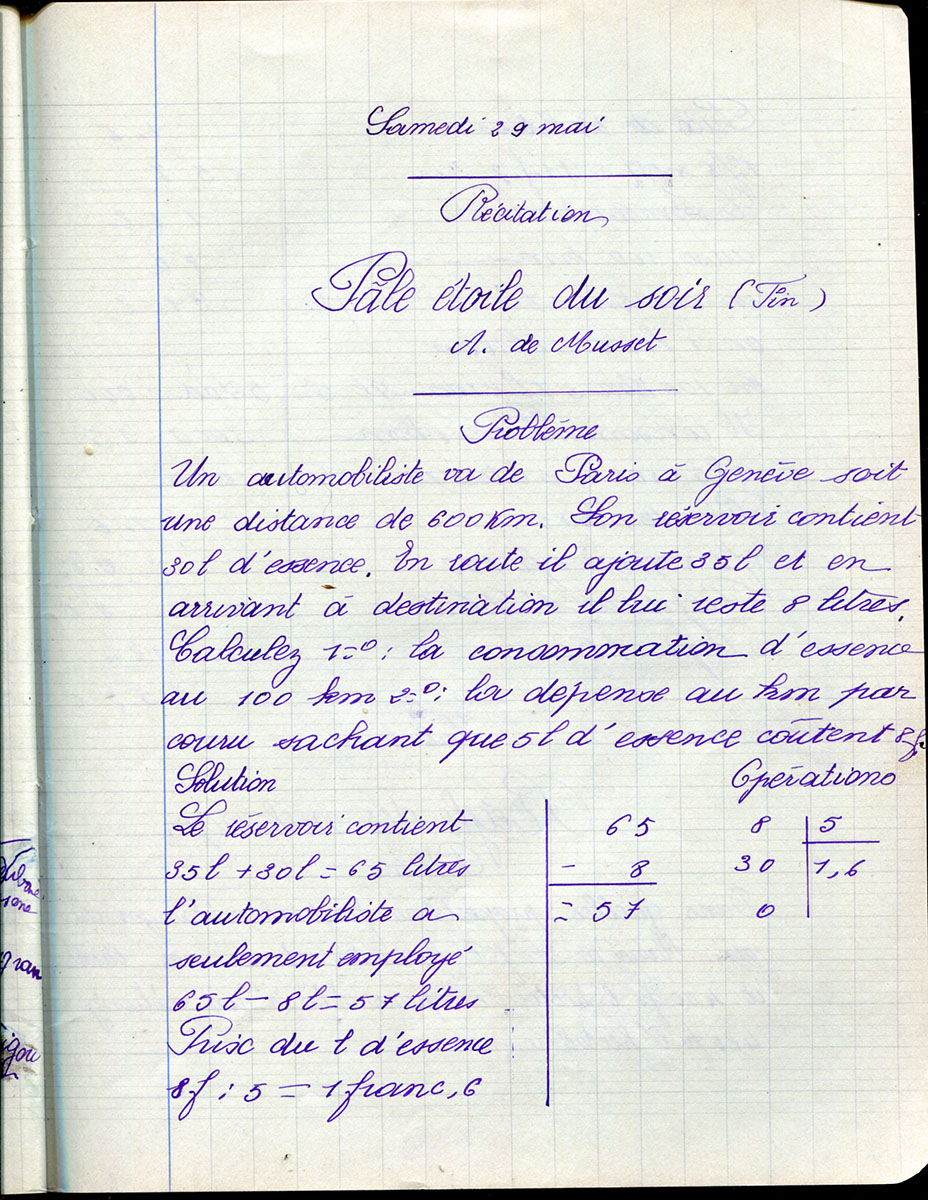 Samedi 29 mai
Récitation
Pâle étoile du soir (Fin)
A. de Musset
Problème
Un automobiliste va de Paris à Genève soit
une distance de 600 km. Son réservoir contient
30l d'essence. En route il ajoute 35l et en
arrivant à destination il lui reste 8 litres.
Calculez 1=º: la consommation d'essence
au 100 km 2=º: la dépense au km par
couru sachant que 5l d'essence coûtent 8f.
Solution Opérations
Le réservoir contient 65 8 5
35l + 30l = 65 litres - 8 30 1,6
l'automobiliste a = 57 0
seulement employé
65l - 8l = 57 litres
Prix du l d'essence
8f : 5 = 1 franc,6